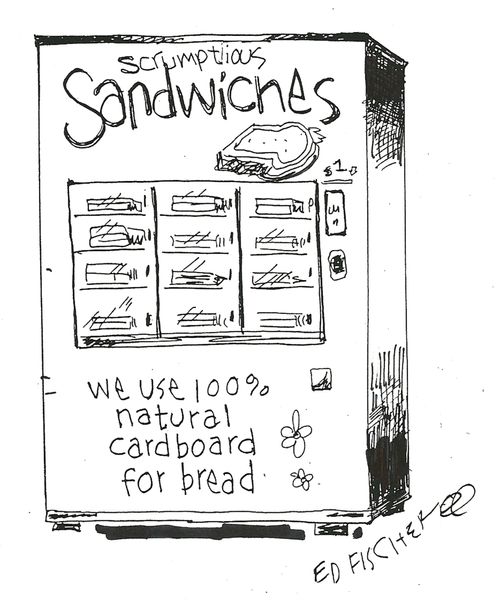 scrumptious
Sandwiches
$1.00
we use 100%
natural
cardboard
for bread
ED FISCHER